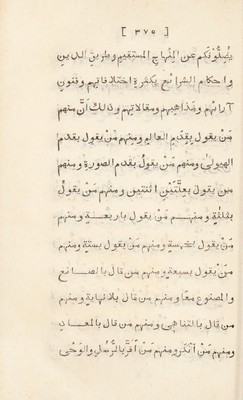 [ ٣٧٥ ]
يُضلّونكم عن المنهاج المستقيم وطريق الدين
واحكام الشرائع بكثرة اختلافاتهم وفنون
آرائهم ومذاهبهم ومقالاتهم وذلك أنّ منهم
مَنْ يقول بِقِدَمِ العالم ومنهم مَنْ يقول بقدم
الهيولى ومنهم مَنْ يقولُ بقدم الصورة ومنهم
مَن يقول بعلّتَيْنِ اثنتين ومنهم مَنْ يقولُ
بثلثة ومنهم مَنْ يقول باربعة ومنهم
مَنْ يقول بخمسة ومنهم مَنْ يقول بستّة ومنهم
مَنْ يقول بسبعة ومنهم مَنْ قال بالصانع
والمصنوع معًا ومنهم مَن قال بلا نهاية ومنهم
مَن قال بالتناهى ومنهم مَن قال بالمعاد
ومنهم مَنْ أنْكَرَ ومنهم مَنْ أقرَّ بالرُّسل والوَحْى